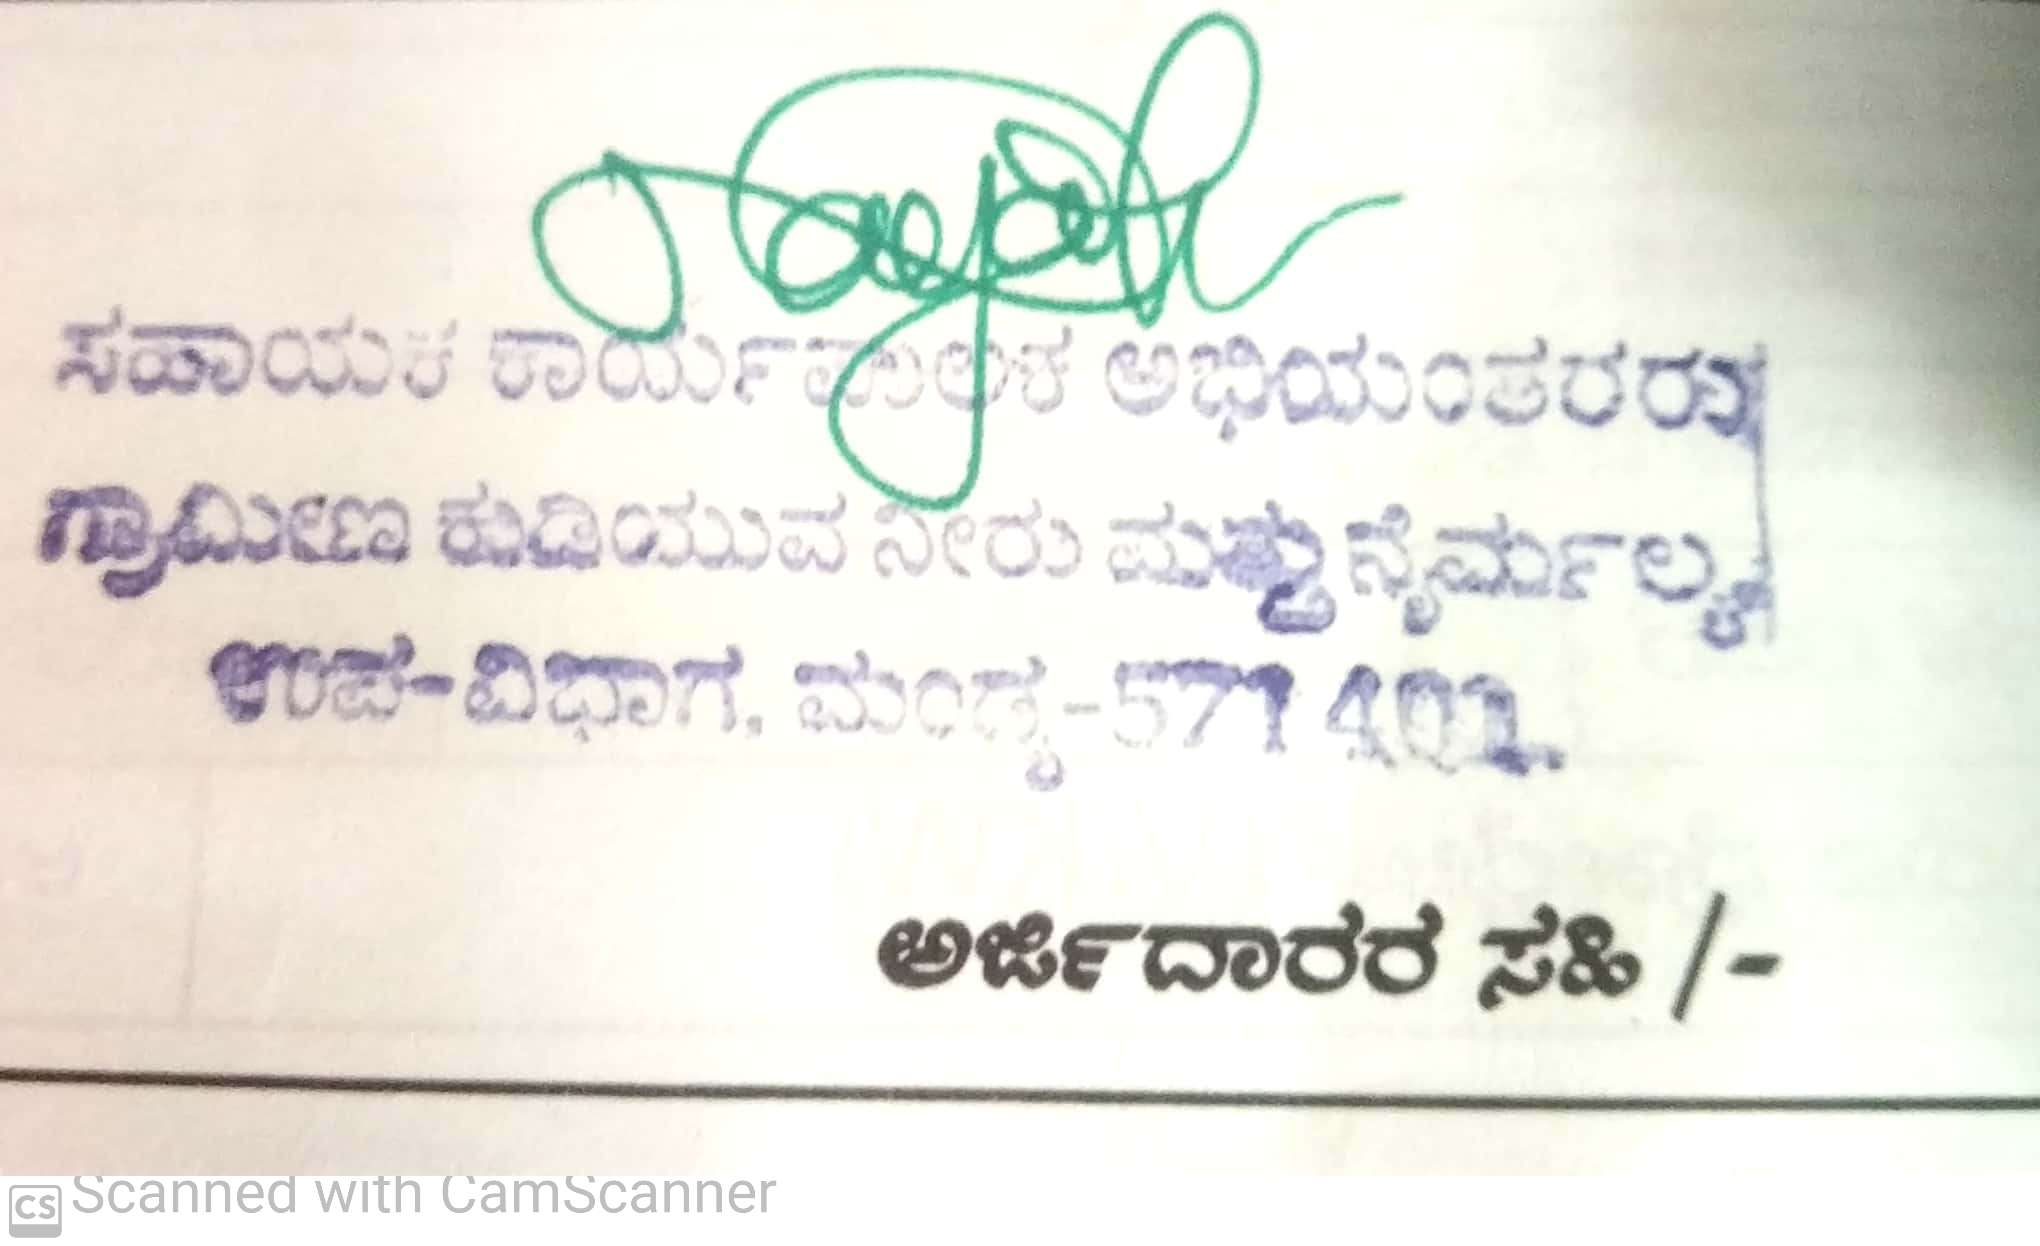 ಸಹಾಯಕ ಕಾರ್ಯಪಾಲಕ ಅಭಿಯಂತರರು
ಗ್ರಾಮೀಣ ಕುಡಿಯುವ ನೀರು ಮತ್ತು ನೈರ್ಮಲ್ಯ
ಉಪ-ವಿಭಾಗ, ಮಂಡ್ಯ-571 401.
ಅರ್ಜಿದಾರರ ಸಹಿ /-
CS Scanned with CamScanner